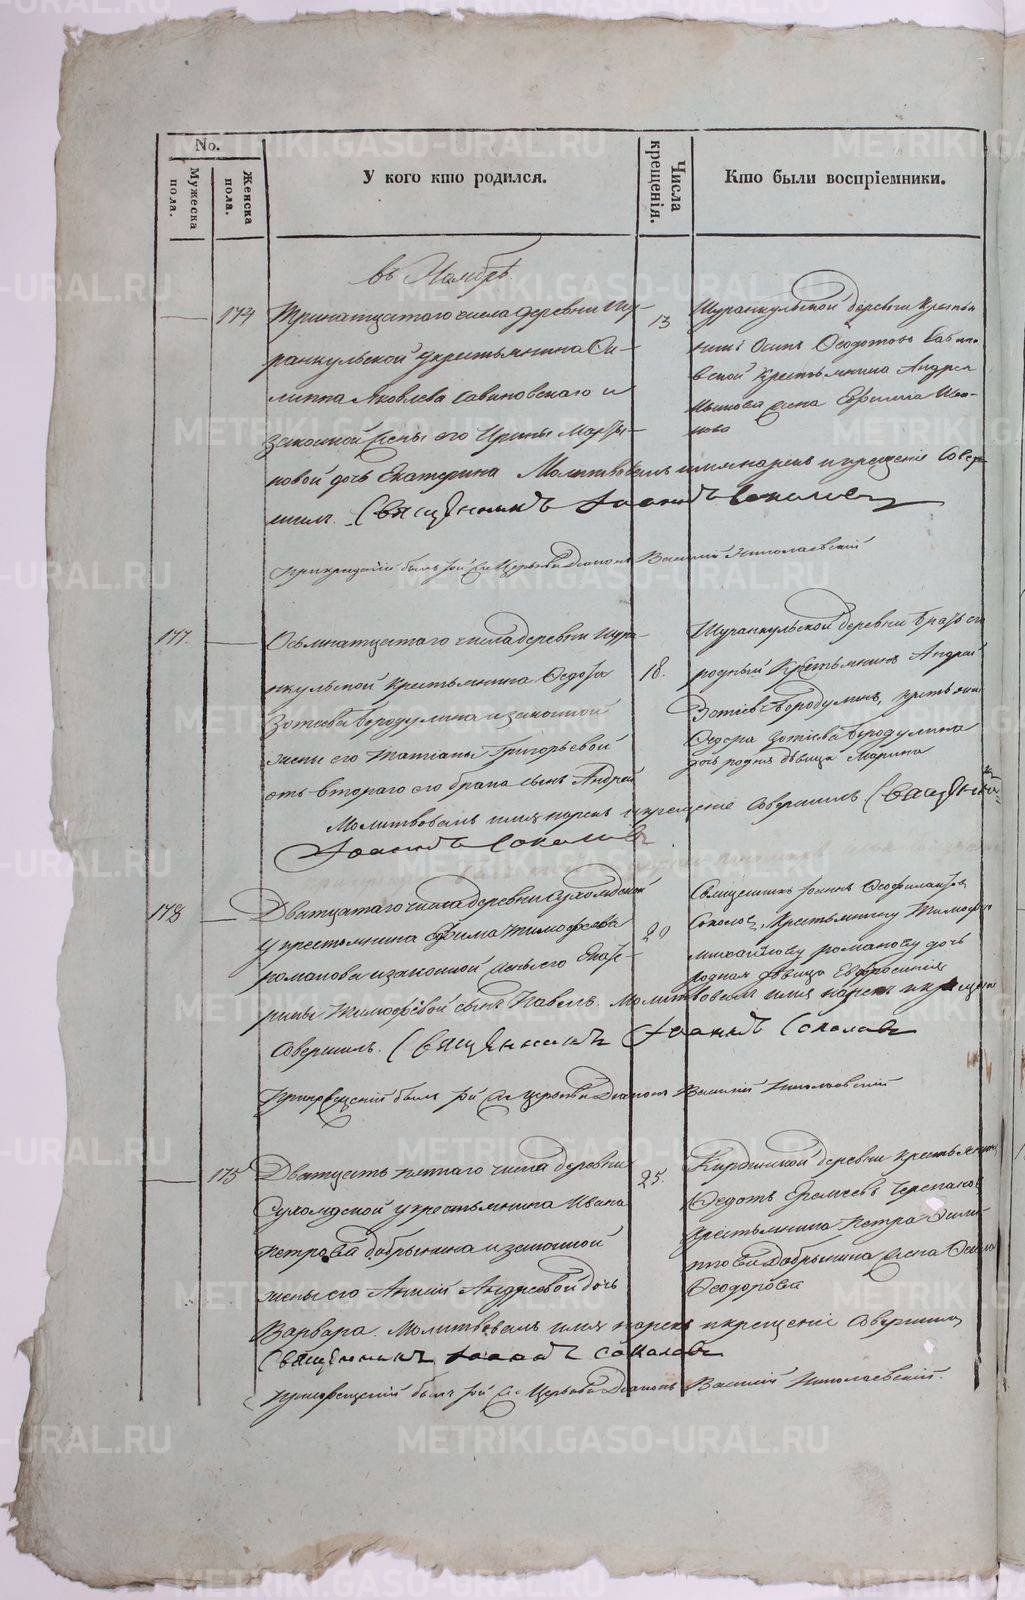 No.
Мужеска пола.
Женска пола.
У кого кто родился.
Числа крещенія.
Кто были воспріемники.
въ Ноябрѣ
174
Тринатцатаго числа деревни Шу-
ранкульской у крестьянина Фи-
липпа Яковлева Савиновскаго и
законной жены его Ирины Марты-
новой дочь Екатерина Молитвовалъ имя нарекъ и крещеніе совер-
шилъ. Священникъ Іоаннъ Соколовъ
При крещеніи былъ той же церкви Діаконъ Василій Николаевскій
13
Шуранкульской деревни Крестья-
нинъ Осипъ Ѳедотовъ
крестьянина Андрея
жена Ефимія Ива-
нова
177.
Осьмнатцатаго числа деревни Шура-
нкульской крестьянина Ѳедота
Зотеева Бородулина и законной
жены его Татіаны Григорьевой
отъ втораго его брака сынъ Андрей
Молитвовалъ имя нарекъ и крещеніе совершилъ Священникъ
Іоаннъ Соколовъ
18.
Шуранкульской деревни братъ его
родный Крестьянинъ Андрей
Зотіевъ Бородулинъ, крестьянина
Ѳедора Зотіева Бородулина
дочь родня дѣвица Марина
178
Дватцатаго числа деревни Сухоядской
у крестьянина Ефима Тимофеева
Романова и законной жены его Екате-
рины Тимофеевой сынъ Павелъ. Молитвовалъ имя нарекъ и крещеніе
совершилъ. Священникъ Іоаннъ Соколовъ
При крещеніи былъ той же церкви Діаконъ Василій Николаевскій
20
Священникъ Іоаннъ Ѳеофилактовъ
Соколовъ, Крестьянину Тимофею
Михайлову Романову дочь
родная дѣвица Евфросинія
175
Дватцать пятаго числа деревни
Сухоядской у крестьянина Ивана
Петрова Добрынина и законной
жены его Анны Андреевой дочь
Варвара. Молитвовалъ имя нарекъ и крещеніе совершилъ
Священникъ Іоаннъ Соколовъ
При крещеніи былъ той же Церкви Діаконъ Василій Николаевскій.
25.
деревни крестьянинъ
Ѳедотъ Еремеевъ Черепановъ
крестьянина Петра Фили-
ппова Добрынина жена
Ѳеодорова
METRIKI.GASO-URAL.RU